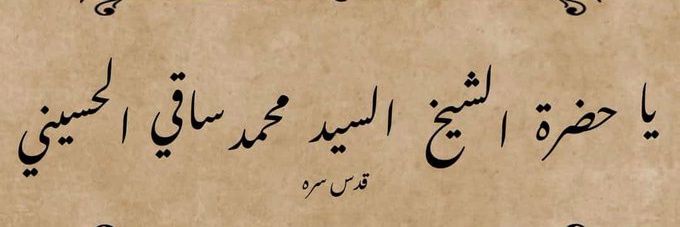 يا حضرة الشيخ السيد محمد ساقي الحسيني
قدس سره